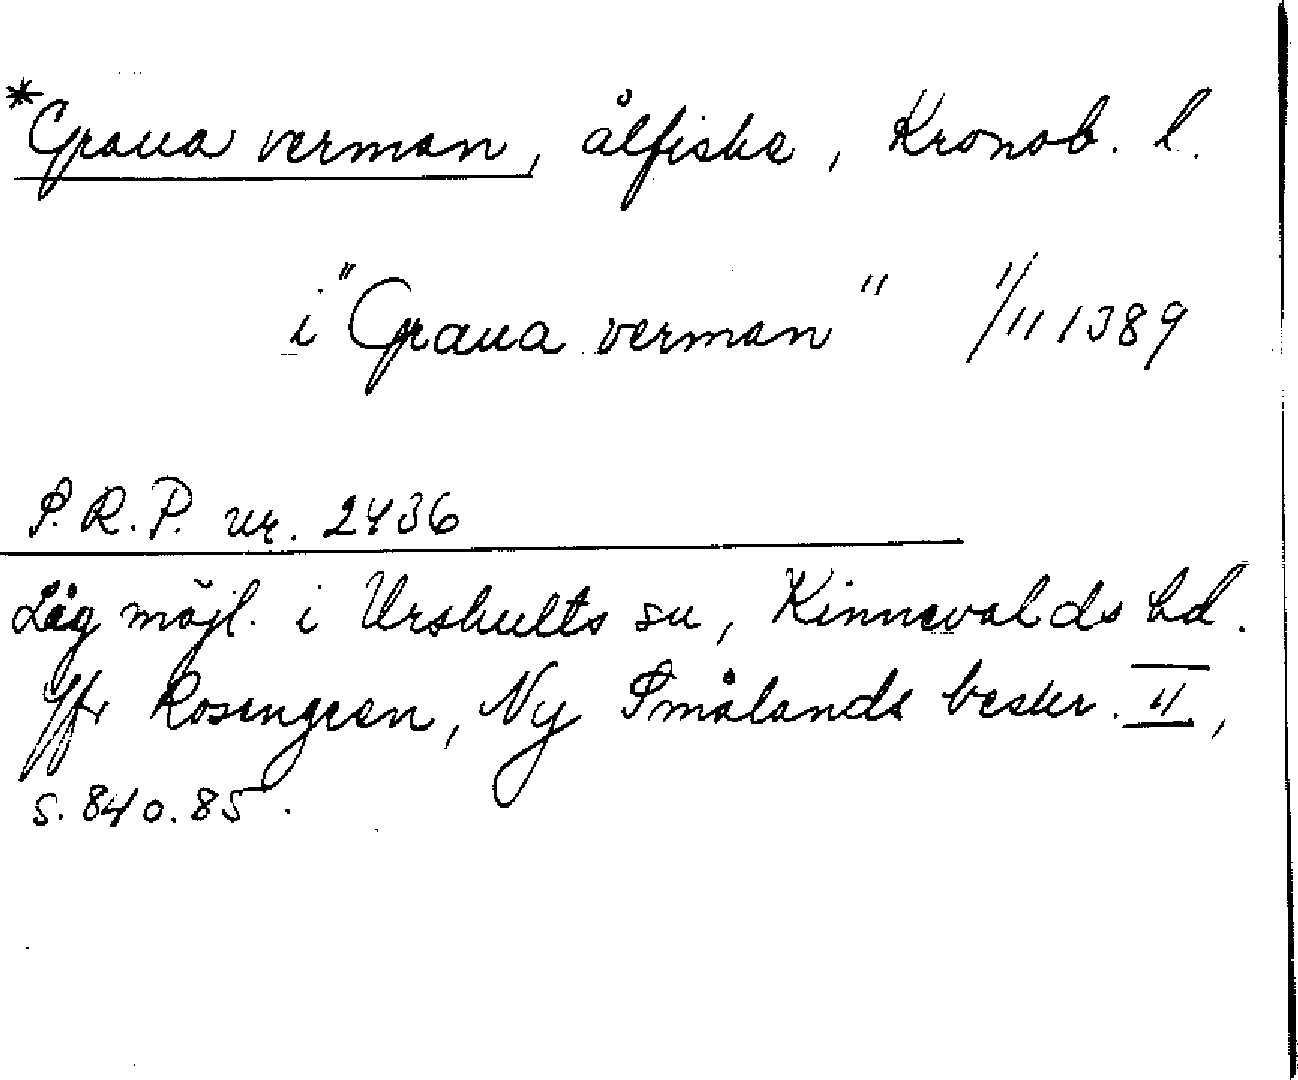 *Graua verman, ålfiske, Kronob. l.
i "Graua verman" 11/11 1389
S.R.P. nr. 2436
Låg möjl. i Urshults sn, Kinnevalds hd.
Jfr Rosengren, Ny Smålands beskr. II,
s. 84 o. 85.